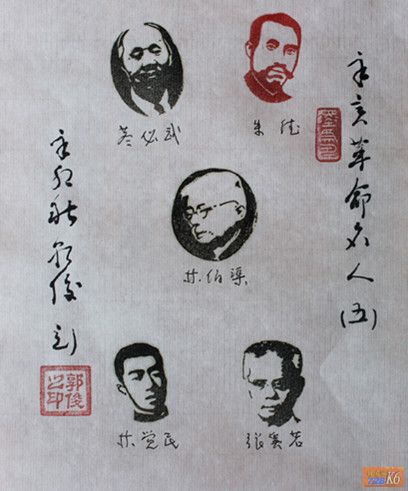 辛亥革命名人(五)
董必武
朱德
林伯渠
林觉民
张奚若
辛卯秋郭俊刻
郭俊之印
K6